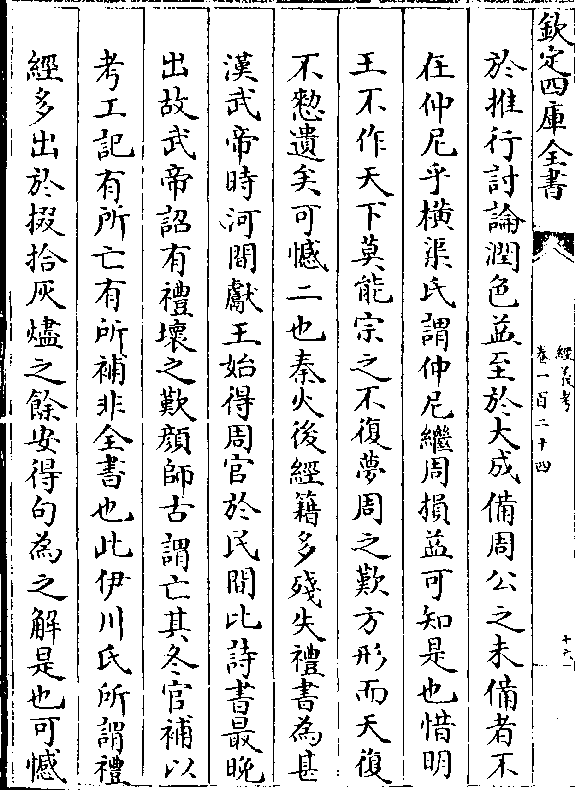 欽定四庫全書
經義考
卷一百二十四
十六
於推行討論潤色益至於大成備周公之未備者不
在仲尼乎橫渠氏謂仲尼繼周損益可知是也惜明
王不作天下莫能宗之不復夢周之歎方形而天復
不憖遺矣可憾二也秦火後經籍多殘失禮書為甚
漢武帝時河間獻王始得周官於民間比詩書最晚
出故武帝詔有禮壞之歎顔師古謂亡其冬官補以
考工記有所亡有所補非全書也此伊川氏所謂禮
經多出於掇拾灰燼之餘安得句為之解是也可憾